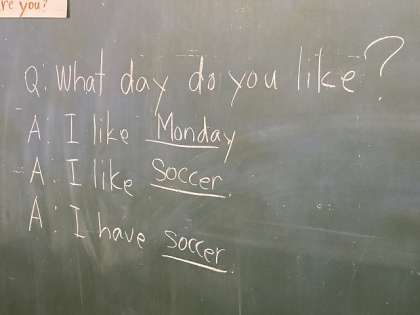 re you?
Q: What day do you like?
A: I like Monday
A: I like Soccer.
A: I have soccer.